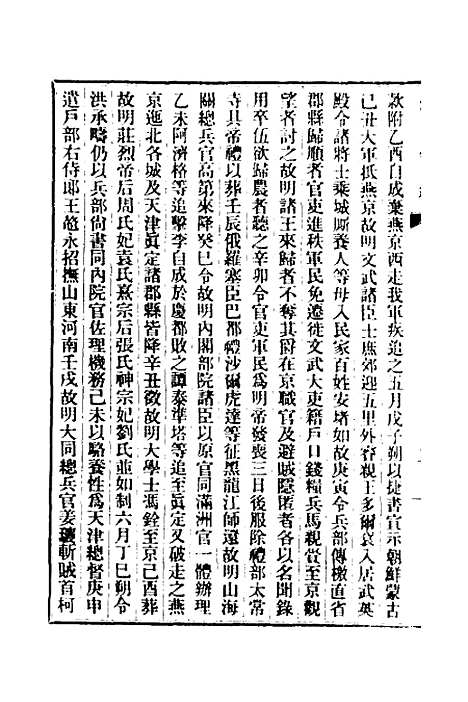 款附乙酉自成棄燕京西走我軍疾追之五月戊子朔以捷書宣示朝鮮蒙古
己丑大軍抵燕京故明文武諸臣士庶郊迎五里外睿親王多爾袞入居武英
殿令諸將士乘城廝養人等毋入民家百姓安堵如故庚寅令兵部傳檄直省
郡縣歸順者官吏進秩軍民免遷徙文武大吏籍戶口錢糧兵馬親賫至京觀
望者討之故明諸王來歸者不奪其爵在京職官及避賊隱匿者各以名聞錄
用卒伍欲歸農者聽之辛卯令官吏軍民爲明帝發喪三日後服除禮部太常
寺具帝禮以葬壬辰俄羅塞臣巴都禮沙爾虎達等征黑龍江師還故明山海
關總兵官高第來降癸巳令故明內閣部院諸臣以原官同滿洲官一體辦理
乙未阿濟格等追擊李自成於慶都敗之譚泰準塔等追至眞定又破走之燕
京迤北各城及天津眞定諸郡縣皆降辛丑徵故明大學士馮銓至京己酉葬
故明莊烈帝后周氏妃袁氏熹宗后張氏神宗妃劉氏並如制六月丁巳朔令
洪承疇仍以兵部尙書同內院官佐理機務己未以駱養性爲天津總督庚申
遣戶部右侍郎王鰲永招撫山東河南壬戌故明大同總兵官姜瓖斬賊首柯